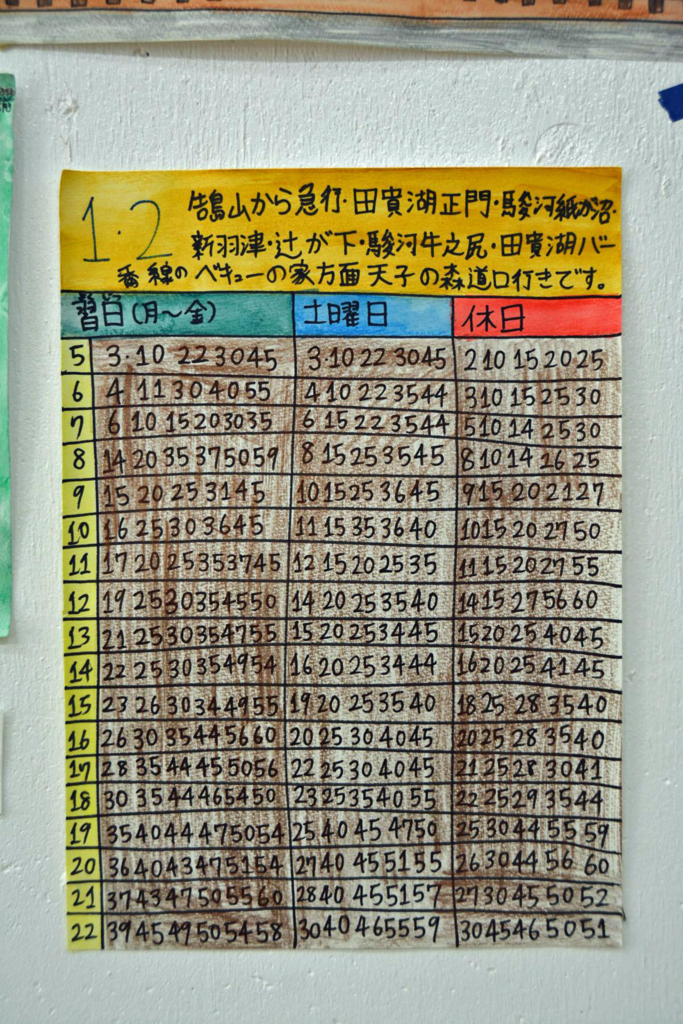 1・2
鵠山から急行・田貫湖正門・駿河紙が沼・
新羽津・辻が下・駿河牛之尻・田貫湖バー
番線のベキューの家方面天子の森道口行きです。
習日(月〜金) 土曜日 休日
5 3・10 22 30 45 3・10 22 30 45 2 10 15 20 25
6 4 11 30 40 55 4 10 22 35 44 3 10 15 25 30
7 6 10 15 20 30 35 6 15 22 35 44 5 10 14 25 30
8 14 20 35 37 50 59 8 15 25 35 45 8 10 14 16 25
9 15 20 25 31 45 10 15 25 36 45 9 15 20 21 27
10 16 25 30 36 45 11 15 35 36 40 10 15 20 27 50
11 17 20 25 35 37 45 12 15 20 25 35 11 15 20 27 55
12 19 25 30 35 45 50 14 20 25 35 40 14 15 27 56 60
13 21 25 30 35 47 55 15 20 25 34 45 15 20 25 40 45
14 22 25 30 35 49 54 16 20 25 34 44 16 20 25 41 45
15 23 26 30 34 49 55 19 20 25 35 40 18 25 28 35 40
16 26 30 35 44 56 60 20 25 30 40 45 20 25 28 35 40
17 28 35 44 45 50 56 22 25 30 40 45 21 25 28 30 41
18 30 35 44 46 54 50 23 25 35 40 55 22 25 29 35 44
19 35 40 44 47 50 54 25 40 45 47 50 25 30 44 55 59
20 36 40 43 47 51 54 27 40 45 51 55 26 30 44 56 60
21 37 43 47 50 55 60 28 40 45 51 57 27 30 45 50 52
22 39 45 49 50 54 58 30 40 46 55 59 30 45 46 50 51